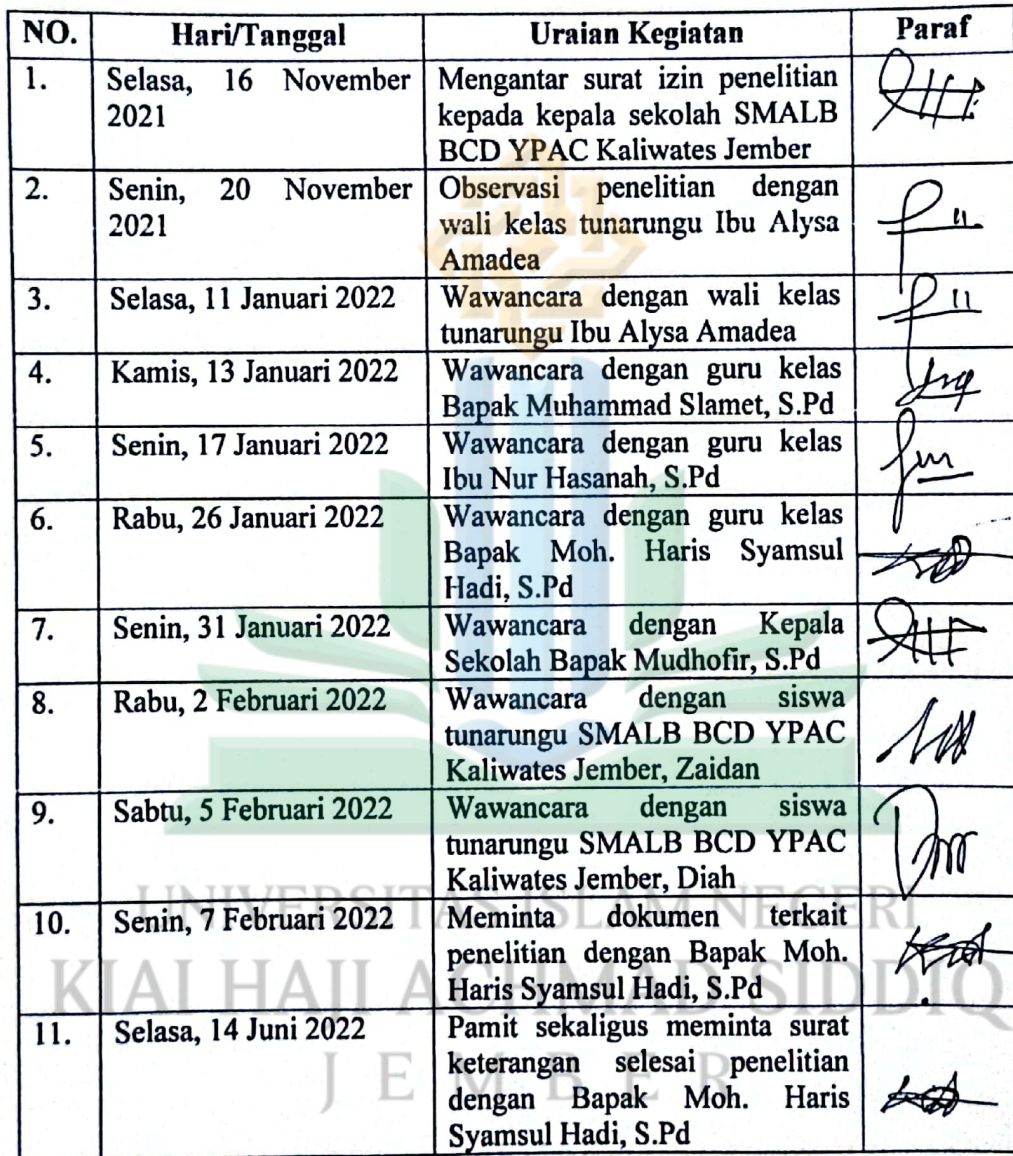 NO. Hari/Tanggal Uraian Kegiatan Paraf
1. Selasa, 16 November Mengantar surat izin penelitian
2021 kepada kepala sekolah SMALB
BCD YPAC Kaliwates Jember
2. Senin, 20 November Observasi penelitian dengan
2021 wali kelas tunarungu Ibu Alysa
Amadea
3. Selasa, 11 Januari 2022 Wawancara dengan wali kelas
tunarungu Ibu Alysa Amadea
4. Kamis, 13 Januari 2022 Wawancara dengan guru kelas
Bapak Muhammad Slamet, S.Pd
5. Senin, 17 Januari 2022 Wawancara dengan guru kelas
Ibu Nur Hasanah, S.Pd
6. Rabu, 26 Januari 2022 Wawancara dengan guru kelas
Bapak Moh. Haris Syamsul
Hadi, S.Pd
7. Senin, 31 Januari 2022 Wawancara dengan Kepala
Sekolah Bapak Mudhofir, S.Pd
8. Rabu, 2 Februari 2022 Wawancara dengan siswa
tunarungu SMALB BCD YPAC
Kaliwates Jember, Zaidan
9. Sabtu, 5 Februari 2022 Wawancara dengan siswa
tunarungu SMALB BCD YPAC
Kaliwates Jember, Diah
UNIVERSITAS ISLAM NEGERI
10. Senin, 7 Februari 2022 Meminta dokumen terkait
penelitian dengan Bapak Moh.
Haris Syamsul Hadi, S.Pd
KIAI HAJI ACHMAD SIDDIQ
11. Selasa, 14 Juni 2022 Pamit sekaligus meminta surat
keterangan selesai penelitian
dengan Bapak Moh. Haris
Syamsul Hadi, S.Pd
JEMBER